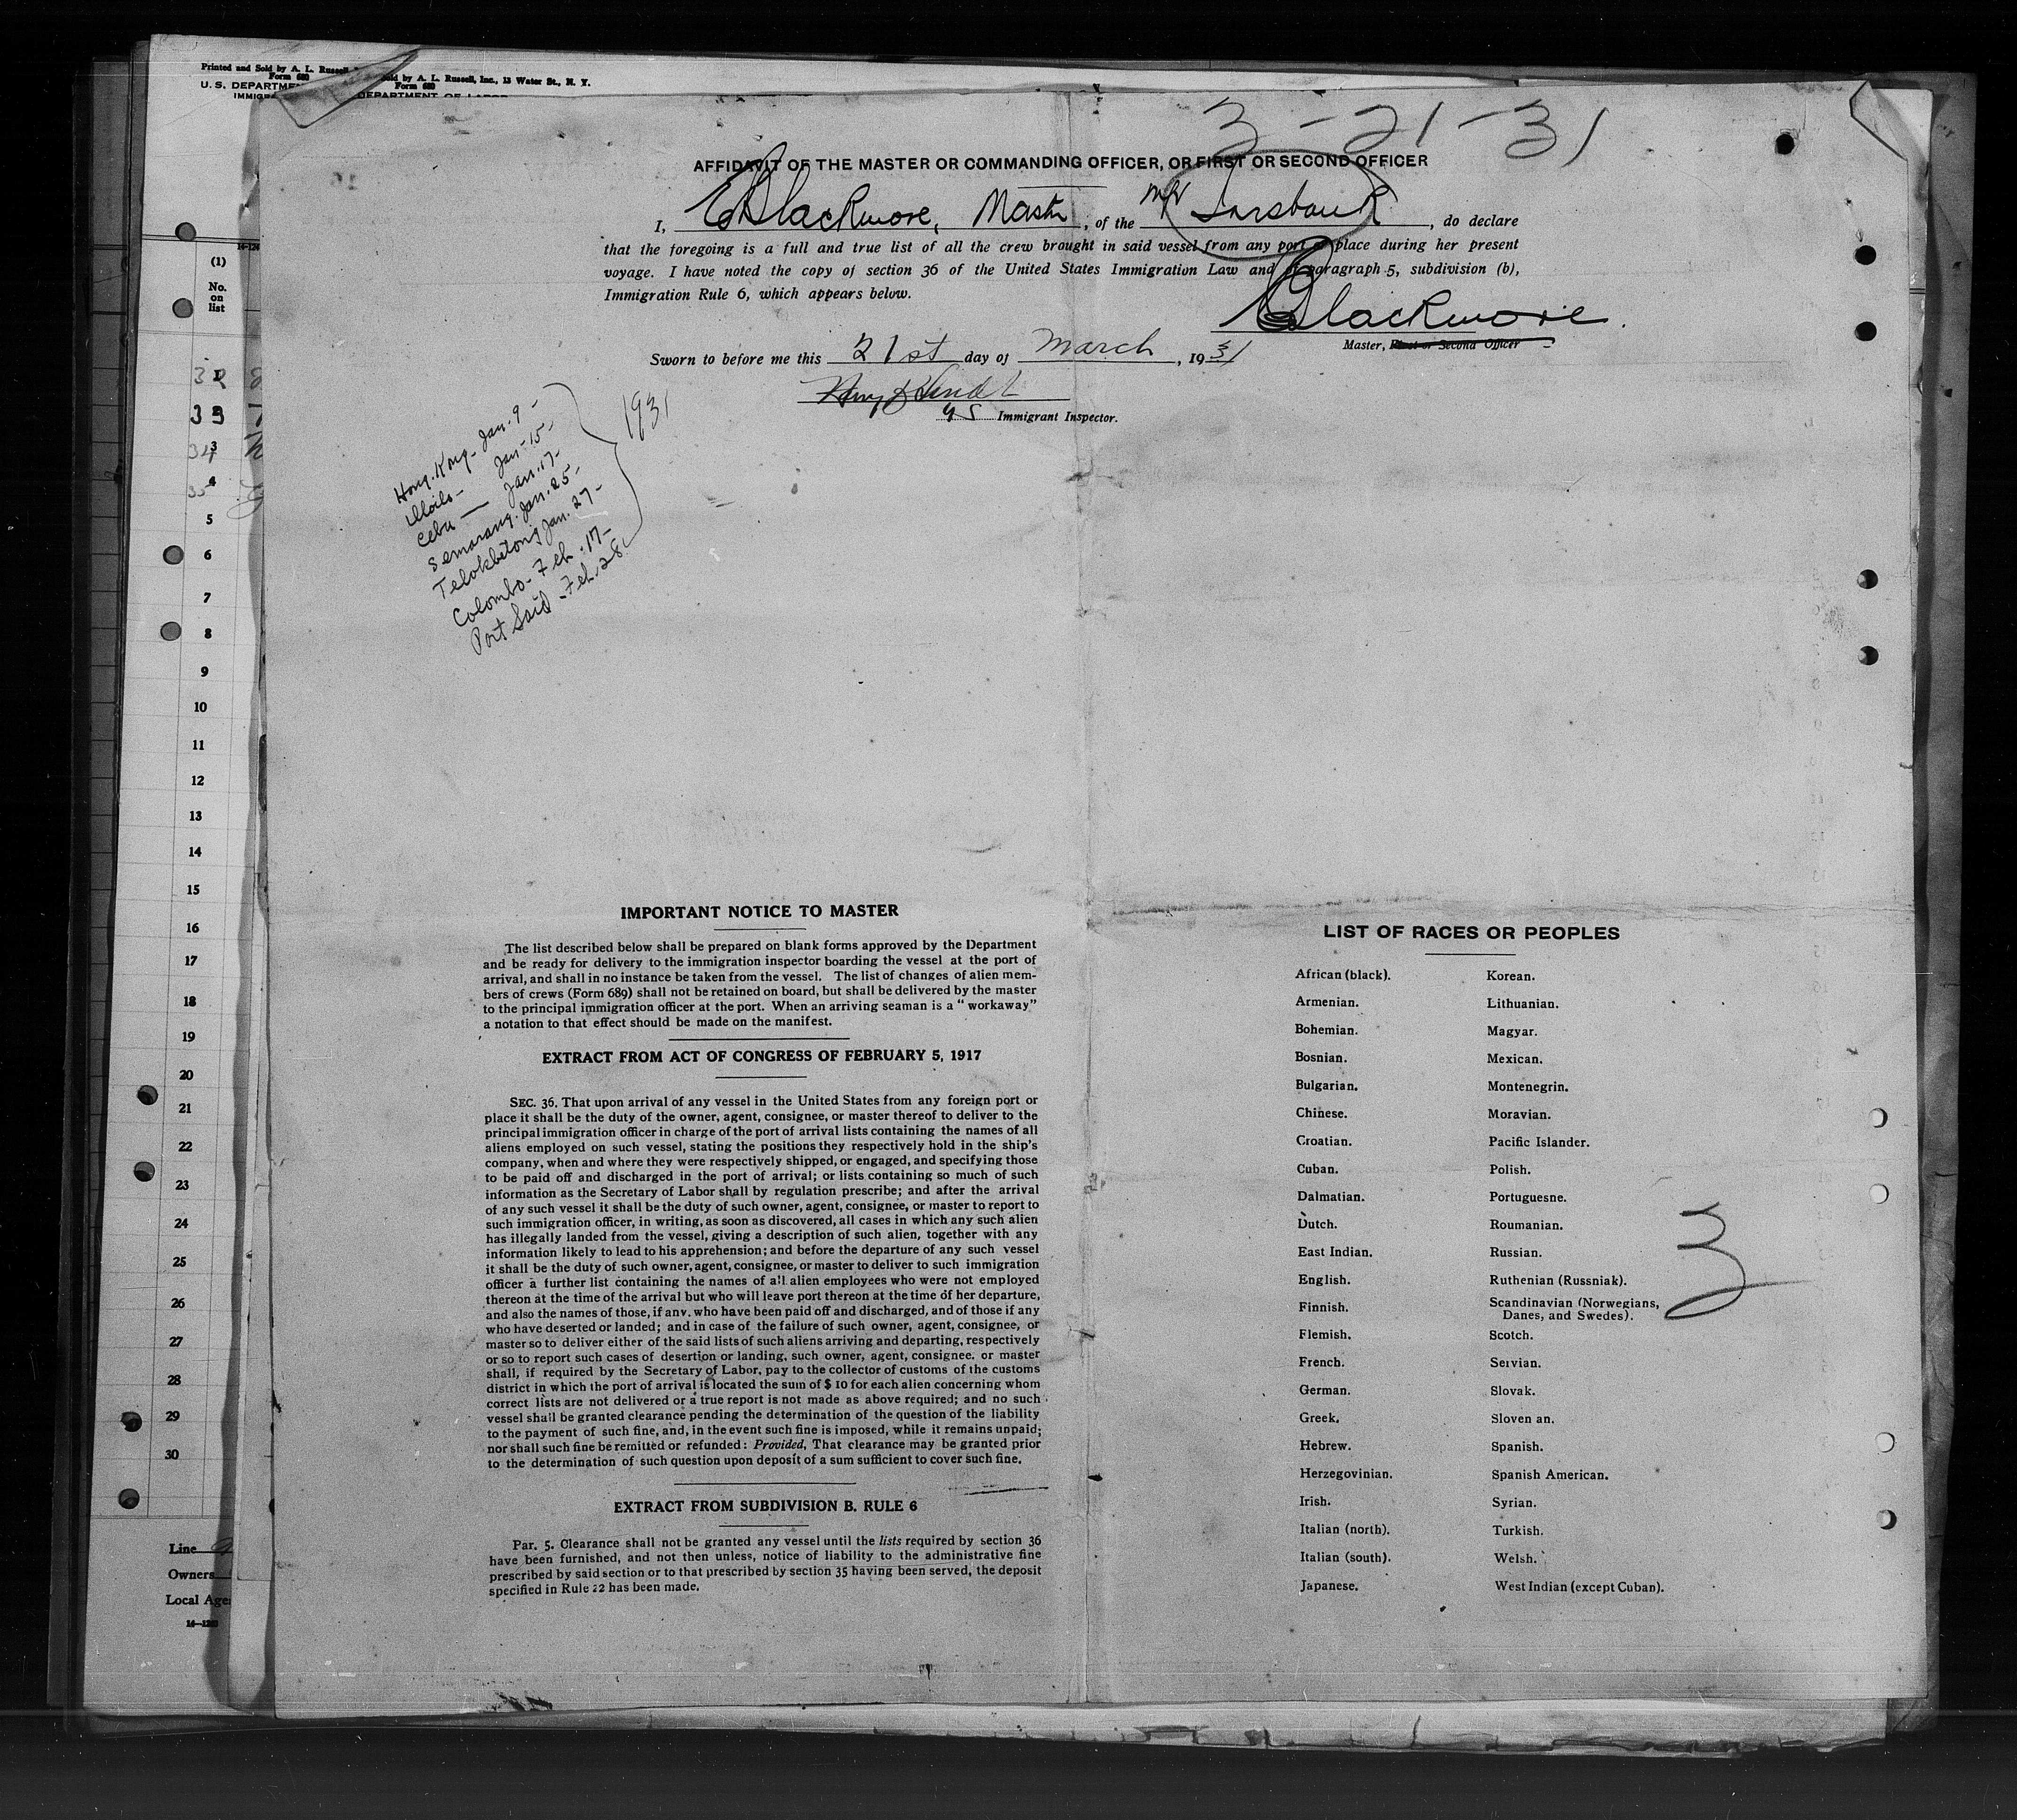 Printed and Sold by A. L. Russell
Form 680
U. S. DEPARTME
IMMIGRA
old by A. L. Russell, Inc., 13 Water St., N. Y.
Form 680
DEPARTMENT OF LABOR
3-21-31
AFFIDAVIT OF THE MASTER OR COMMANDING OFFICER, OR FIRST OR SECOND OFFICER
I, E Blackmore, Master, of the MV, do declare
that the foregoing is a full and true list of all the crew brought in said vessel from any port or place during her present
voyage. I have noted the copy of section 36 of the United States Immigration Law and of paragraph 5, subdivision (b),
Immigration Rule 6, which appears below.
E Blackmore.
Master, First or Second Officer
Sworn to before me this 21st day of March, 1931
US Immigrant Inspector.
Hong-Kong - Jan. 9 -
Iloilo - Jan - 15 -
Cebu - Jan. 17 -
Semarang. Jan. 25 -
Telokbetong Jan. 27 -
Colombo - Feb. 17 -
Port Said - Feb. 28
1931
14-124
(1)
No.
on
list
32
33
3
34
4
35
5
6
7
8
9
10
11
12
13
14
15
16
17
18
19
20
21
22
23
24
25
26
27
28
29
30
Line
Owners
Local Age
IMPORTANT NOTICE TO MASTER
The list described below shall be prepared on blank forms approved by the Department
and be ready for delivery to the immigration inspector boarding the vessel at the port of
arrival, and shall in no instance be taken from the vessel. The list of changes of alien mem-
bers of crews (Form 689) shall not be retained on board, but shall be delivered by the master
to the principal immigration officer at the port. When an arriving seaman is a "workaway"
a notation to that effect should be made on the manifest.
EXTRACT FROM ACT OF CONGRESS OF FEBRUARY 5, 1917
SEC. 36. That upon arrival of any vessel in the United States from any foreign port or
place it shall be the duty of the owner, agent, consignee, or master thereof to deliver to the
principal immigration officer in charge of the port of arrival lists containing the names of all
aliens employed on such vessel, stating the positions they respectively hold in the ship's
company, when and where they were respectively shipped, or engaged, and specifying those
to be paid off and discharged in the port of arrival; or lists containing so much of such
information as the Secretary of Labor shall by regulation prescribe; and after the arrival
of any such vessel it shall be the duty of such owner, agent, consignee, or master to report to
such immigration officer, in writing, as soon as discovered, all cases in which any such alien
has illegally landed from the vessel, giving a description of such alien, together with any
information likely to lead to his apprehension; and before the departure of any such vessel
it shall be the duty of such owner, agent, consignee, or master to deliver to such immigration
officer a further list containing the names of all alien employees who were not employed
thereon at the time of the arrival but who will leave port thereon at the time of her departure,
and also the names of those, if any, who have been paid off and discharged, and of those if any
who have deserted or landed; and in case of the failure of such owner, agent, consignee, or
master so to deliver either of the said lists of such aliens arriving and departing, respectively
or so to report such cases of desertion or landing, such owner, agent, consignee. or master
shall, if required by the Secretary of Labor, pay to the collector of customs of the customs
district in which the port of arrival is located the sum of $ 10 for each alien concerning whom
correct lists are not delivered or a true report is not made as above required; and no such
vessel shall be granted clearance pending the determination of the question of the liability
to the payment of such fine, and, in the event such fine is imposed, while it remains unpaid;
nor shall such fine be remitted or refunded: Provided, That clearance may be granted prior
to the determination of such question upon deposit of a sum sufficient to cover such fine.
EXTRACT FROM SUBDIVISION B. RULE 6
Par. 5. Clearance shall not be granted any vessel until the lists required by section 36
have been furnished, and not then unless, notice of liability to the administrative fine
prescribed by said section or to that prescribed by section 35 having been served, the deposit
specified in Rule 22 has been made.
LIST OF RACES OR PEOPLES
African (black). Korean.
Armenian. Lithuanian.
Bohemian. Magyar.
Bosnian. Mexican.
Bulgarian. Montenegrin.
Chinese. Moravian.
Croatian. Pacific Islander.
Cuban. Polish.
Dalmatian. Portuguesne.
Dutch. Roumanian.
East Indian. Russian.
English. Ruthenian (Russniak).
Finnish. Scandinavian (Norwegians,
Danes, and Swedes).
Flemish. Scotch.
French. Servian.
German. Slovak.
Greek. Sloven an.
Hebrew. Spanish.
Herzegovinian. Spanish American.
Irish. Syrian.
Italian (north). Turkish.
Italian (south). Welsh.
Japanese. West Indian (except Cuban).
3